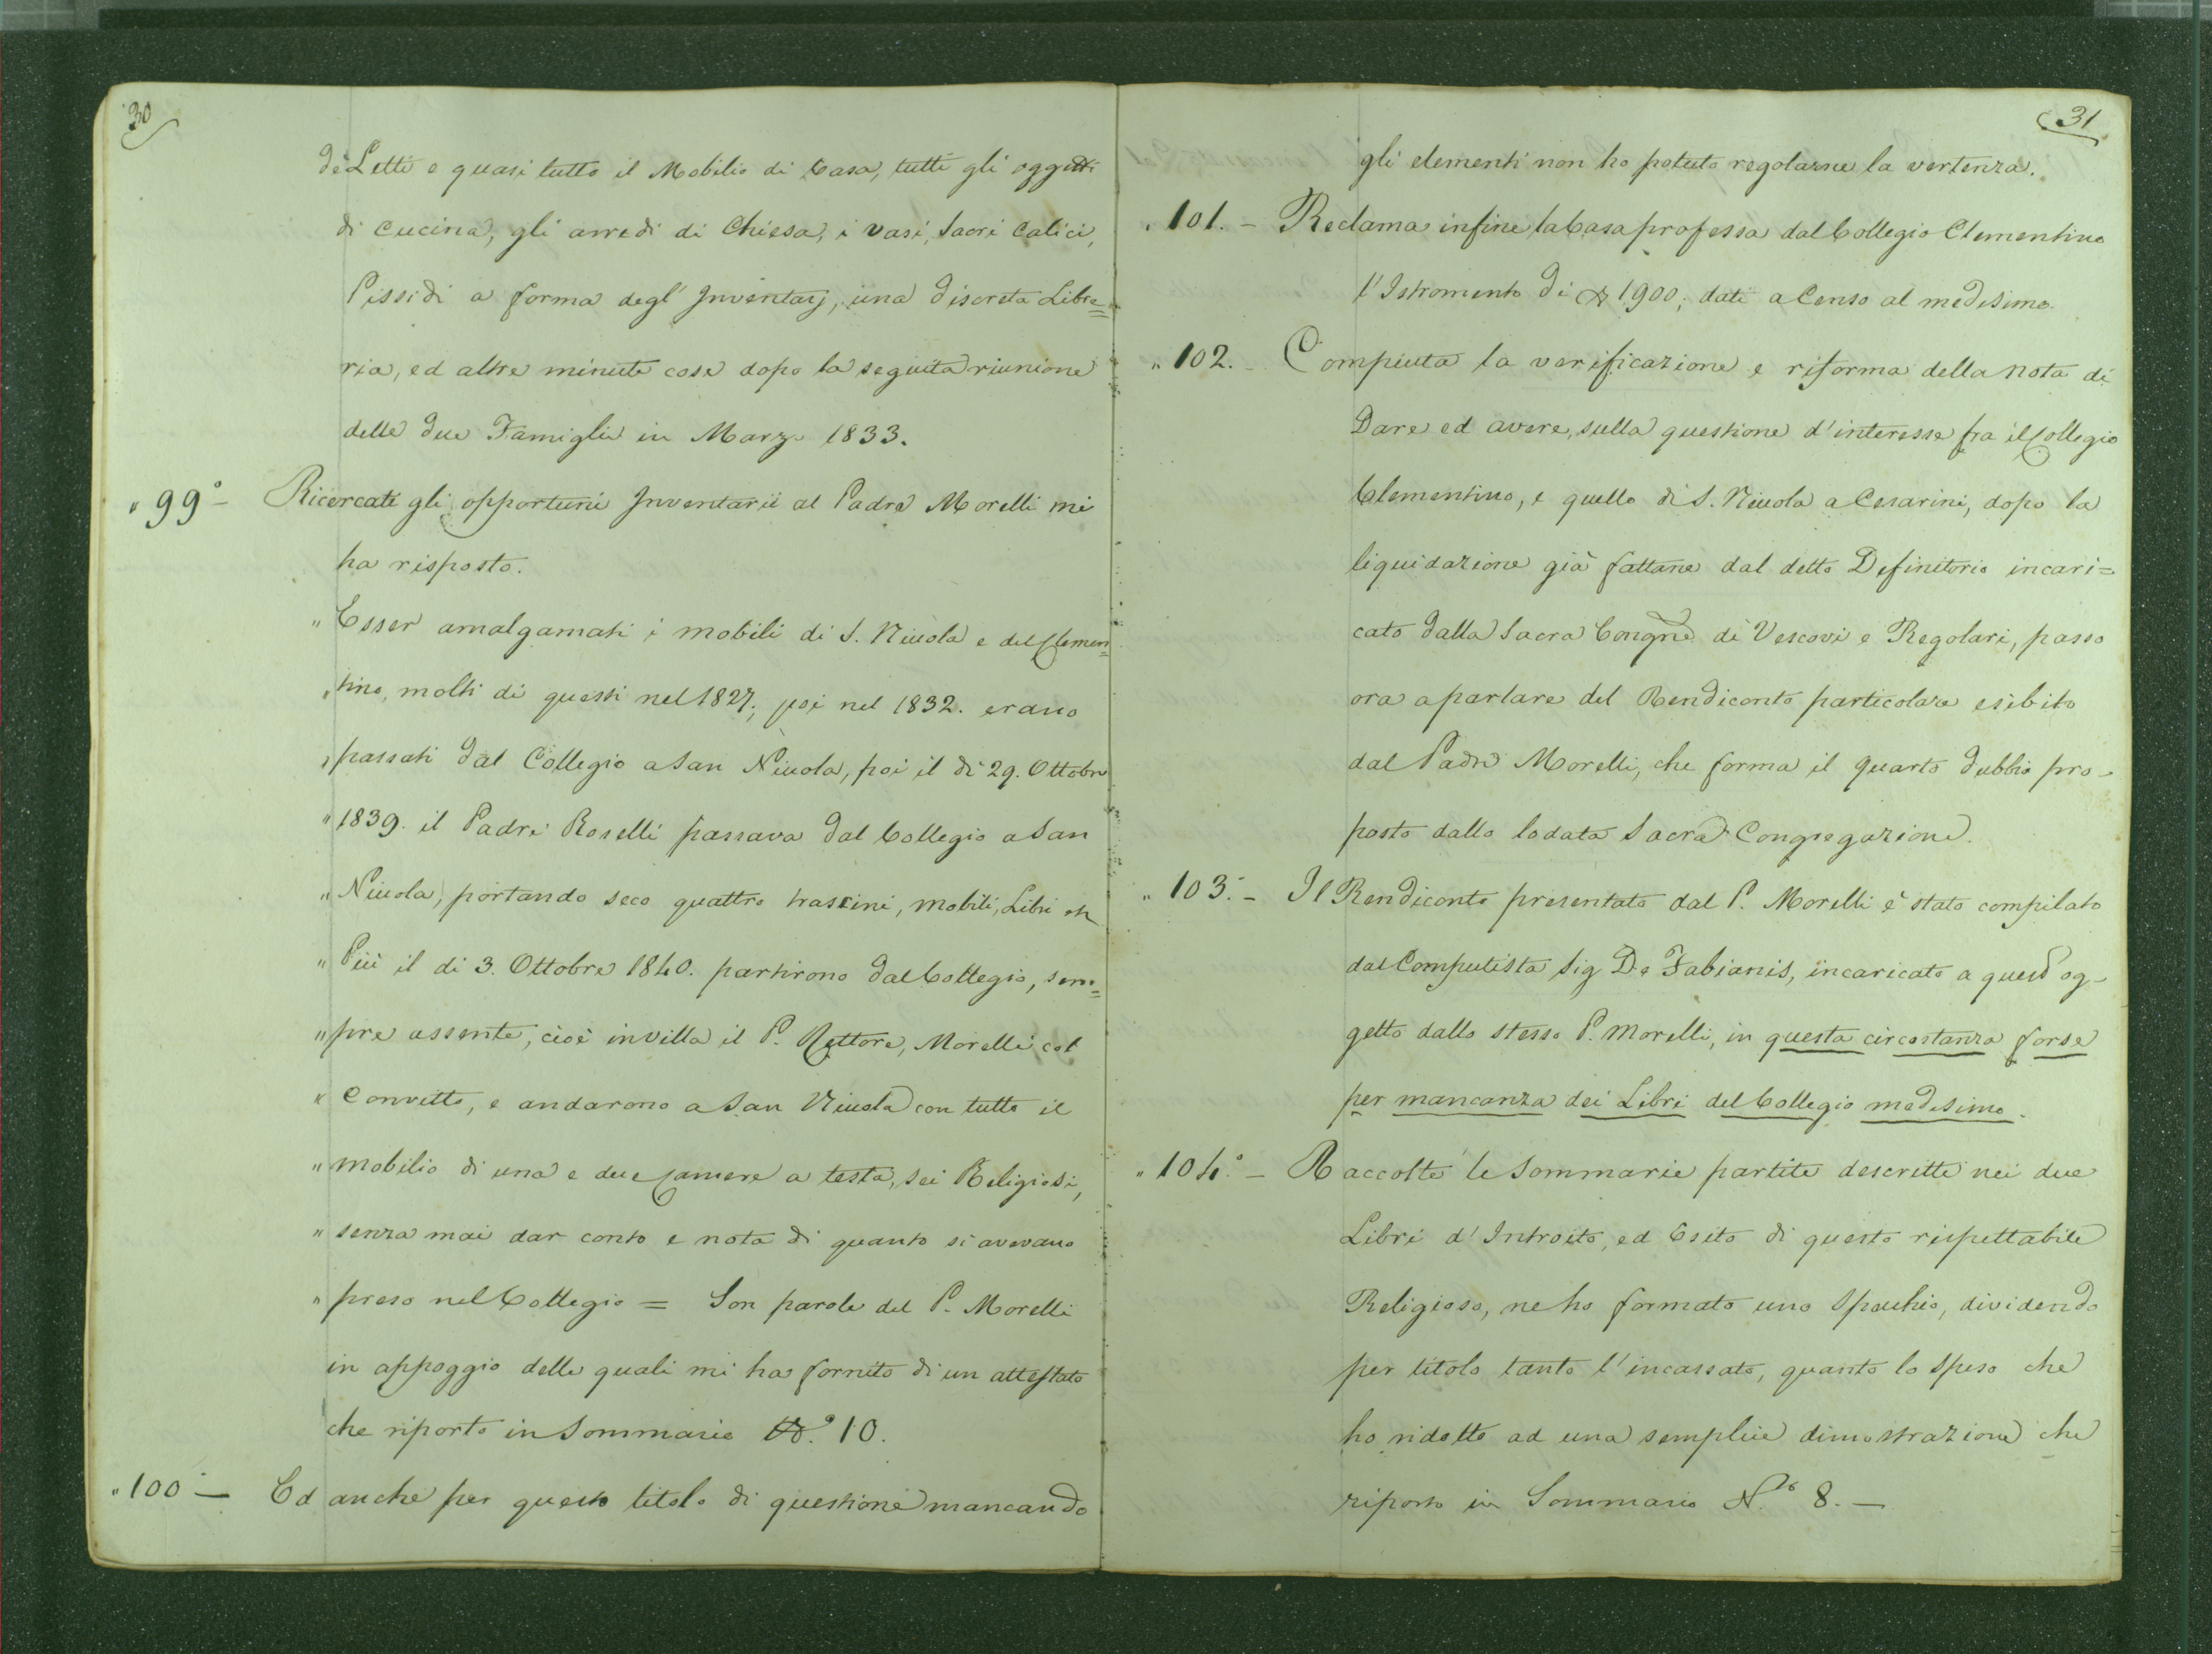 30
de Letti e quasi tutto il Mobilio di Casa, tutti gli oggetti
di cucina, gli arredi di Chiesa, i vasi, Sacri Calici,
Pissidi a forma degl' Inventarj, una discreta Libre=
ria, ed altre minute cose dopo la seguita riunione
delle due Famiglie in Marzo 1833.
" 99° - Ricercati gli opportuni Inventarii al Padre Morelli mi
ha risposto.
" Esser amalgamati i mobili di S. Nicola e del Clemen=
" tino, molti di questi nel 1827, poi nel 1832. erano
" passati dal Collegio a San Nicola, poi il dì 29. Ottobre
" 1839. il Padre Roselli passava dal Collegio a San
" Nicola, portando seco quattro trascini, mobili, Libri
" Più il di 3. Ottobre 1840. partirono dal Collegio, sem=
" pre assente, cioè in villa il P. Rettore, Morelli col
" Convitto, e andarono a San Nicola con tutto il
" mobilio di una e due Camere a testa, sei Religiosi,
" senza mai dar conto e nota di quanto si avevano
" preso nel Collegio = Son parole del P. Morelli
in appoggio delle quali mi ha fornito di un attestato
che riporto in Sommario N.° 10.
" 100° - Ed anche per questo titolo di questione mancando
31
gli elementi non ho potuto regolarne la vertenza.
" 101. - Reclama infine la Casa professa dal Collegio Clementino
l'Istromento di 1900, dati a Censo al medesimo.
" 102. - Compiuta la verificazione e riforma della nota di
Dare ed avere, sulla questione d'interesse fra il Collegio
Clementino, e quello di S. Nicola a Cesarini, dopo la
liquidazione già fattane dal detto Definitorio incari=
cato dalla Sacra Congne di Vescovi e Regolari, passo
ora a parlare del Rendiconto particolare esibito
dal Padre Morelli, che forma il quarto dubbio pro-
posto dalla lodata Sacra Congregazione.
" 103.° - Il Rendiconto presentato dal P. Morelli è stato compilato
dal Computista Sig De Fabianis, incaricato a quest' og-
getto dallo stesso P. Morelli, in questa circostanza forse
per mancanza dei Libri del Collegio medesimo.
" 104.° - Raccolte le Sommarie partite descritte nei due
Libri d' Introito, ed Esito di questo rispettabile
Religioso, ne ho formato uno Specchio, dividendo
per titolo tanto l'incassato, quanto lo speso che
ho ridotto ad una semplice dimostrazione che
riporto in Sommario N.° 8. -